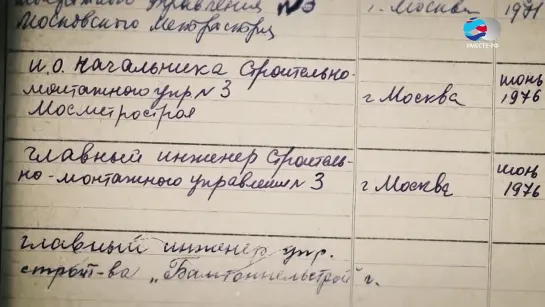 управления №3
г. Москва
1971
Московского Метростроя
и.о. начальника Строительно-
монтажного упр №3
Мосметростроя
г Москва
июнь
1976
главный инженер Строитель-
но-монтажного управления №3
г Москва
июнь
1976
главный инженер упр.
строит-ва „Бамтоннельстрой" г.
ВМЕСТЕ-РФ